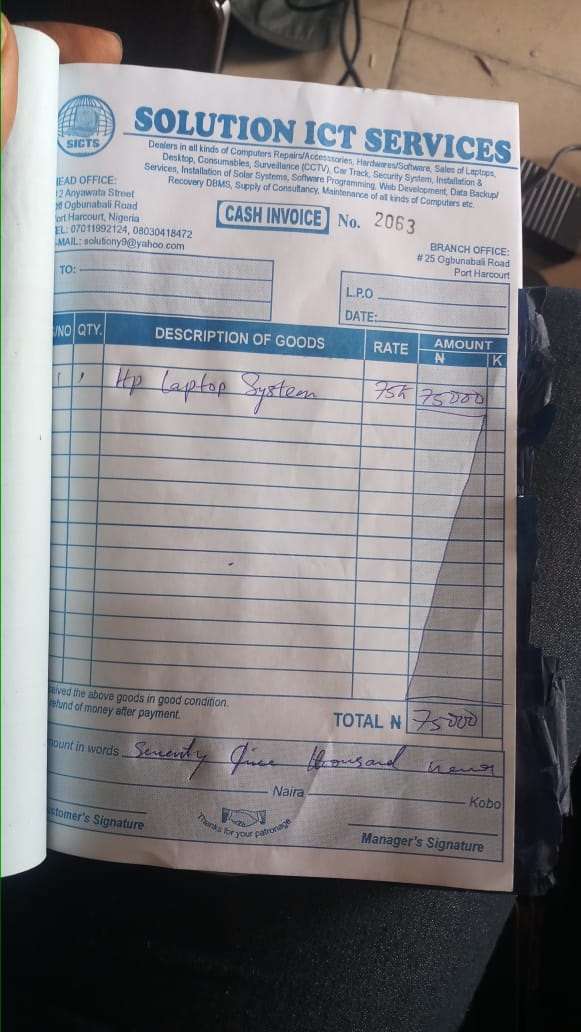 SICTS
SOLUTION ICT SERVICES
Dealers in all kinds of Computers Repairs/Accesssories, Hardwares/Software, Sales of Laptops,
Desktop, Consumables, Surveillance (CCTV), Car Track, Security System, Installation &
Services, Installation of Solar Systems, Software Programming, Web Development, Data Backup/
Recovery DBMS, Supply of Consultancy, Maintenance of all kinds of Computers etc.
EAD OFFICE:
2 Anyawata Street
ff Ogbunabali Road
ort Harcourt, Nigeria
EL: 07011992124, 08030418472
-MAIL: solutiony9@yahoo.com
CASH INVOICE No. 2063
BRANCH OFFICE:
# 25 Ogbunabali Road
Port Harcourt
TO:
L.P.O
DATE:
/NO QTY. DESCRIPTION OF GOODS RATE AMOUNT
₦ K
1 1 Hp Laptop System 75k 75000
eived the above goods in good condition.
efund of money after payment.
TOTAL ₦ 75000
ount in words Seventy five thousand
Naira Kobo
stomer's Signature
Thanks for your patronage
Manager's Signature